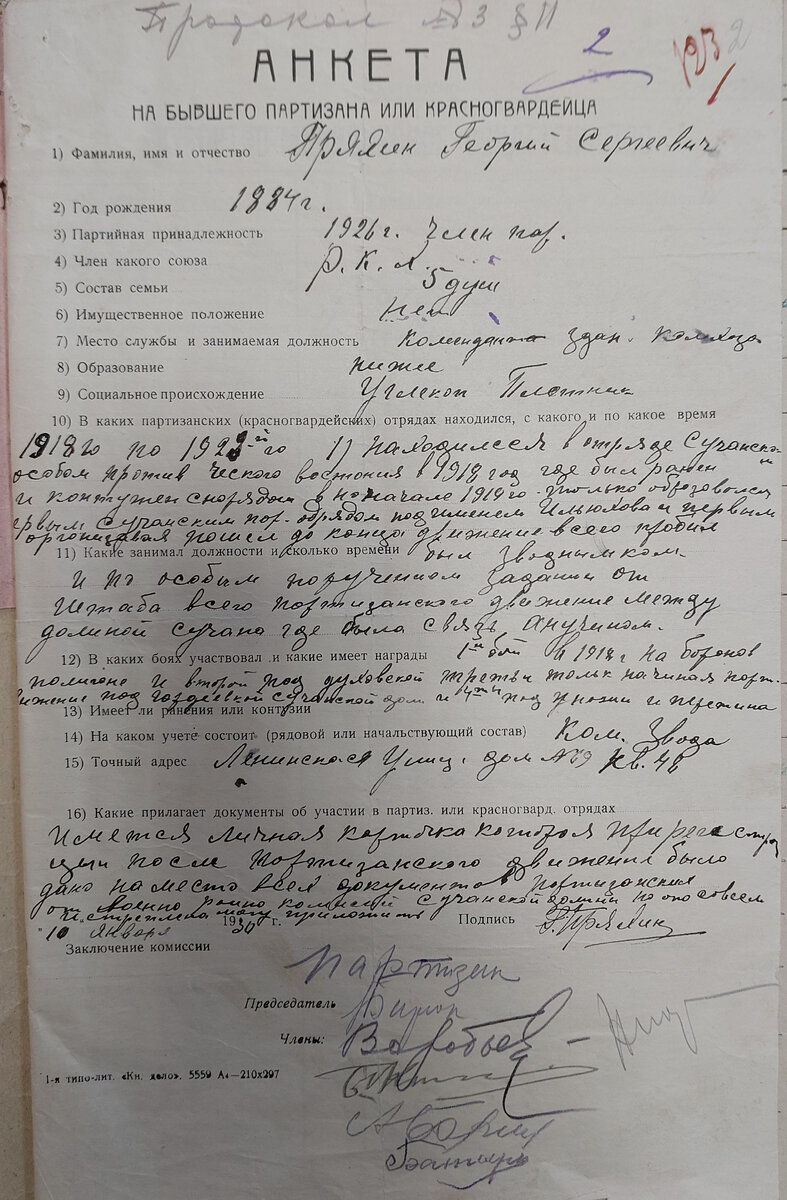 Протокол №3 §11
2
123
2
АНКЕТА
НА БЫВШЕГО ПАРТИЗАНА ИЛИ КРАСНОГВАРДЕЙЦА
1) Фамилия, имя и отчество Прялин Георгий Сергеевич
2) Год рождения 1884 г.
3) Партийная принадлежность 1926 г. член пар.
4) Член какого союза
5) Состав семьи 5 душ
6) Имущественное положение нет
7) Место службы и занимаемая должность Комендант здан.
8) Образование ниже
9) Социальное происхождение Углекоп Плотник
10) В каких партизанских (красногвардейских) отрядах находился, с какого и по какое время
1918 го по 1922 го 1) находилсея в отряде Сучанском
особом против ческого востония в 1918 год где был ранен
и контужен снорядом в начало 1919 го. только образовался
первым Сучанским пор. под именем Ильюхова и первым
пошел до конца движение всего пробил
11) Какие занимал должности и сколько времени был зводным ком.
и по особым поручением задании от
Штаба всего портизанского движение между
долиной сучана где была связь Анучином.
12) В каких боях участвовал и какие имеет награды 1й бой в 1918 г на
и второй под духовской третьи только начиная
под сучанской дом и под и перетина
13) Имеет ли ранения или контузии
14) На каком учете состоит (рядовой или начальствующий состав) Ком. Звода
15) Точный адрес Ленинская Улиц. дом №69 кв. 48
16) Какие прилагает документы об участии в партиз. или красногвард. отрядах
Иметси личная корточка которая при регестрац
ции после портизанского движения было
дано на место всех документов портизанския
от военно комисий Сучанской долины но она совсем
истреплена могу приложить Подпись Г. Прялин
"10" января 1930 г.
Заключение комиссии
партизан
Председатель
Члены: Воробьев
1-я типо-лит. «Кн. дело». 5559 А4—210х297